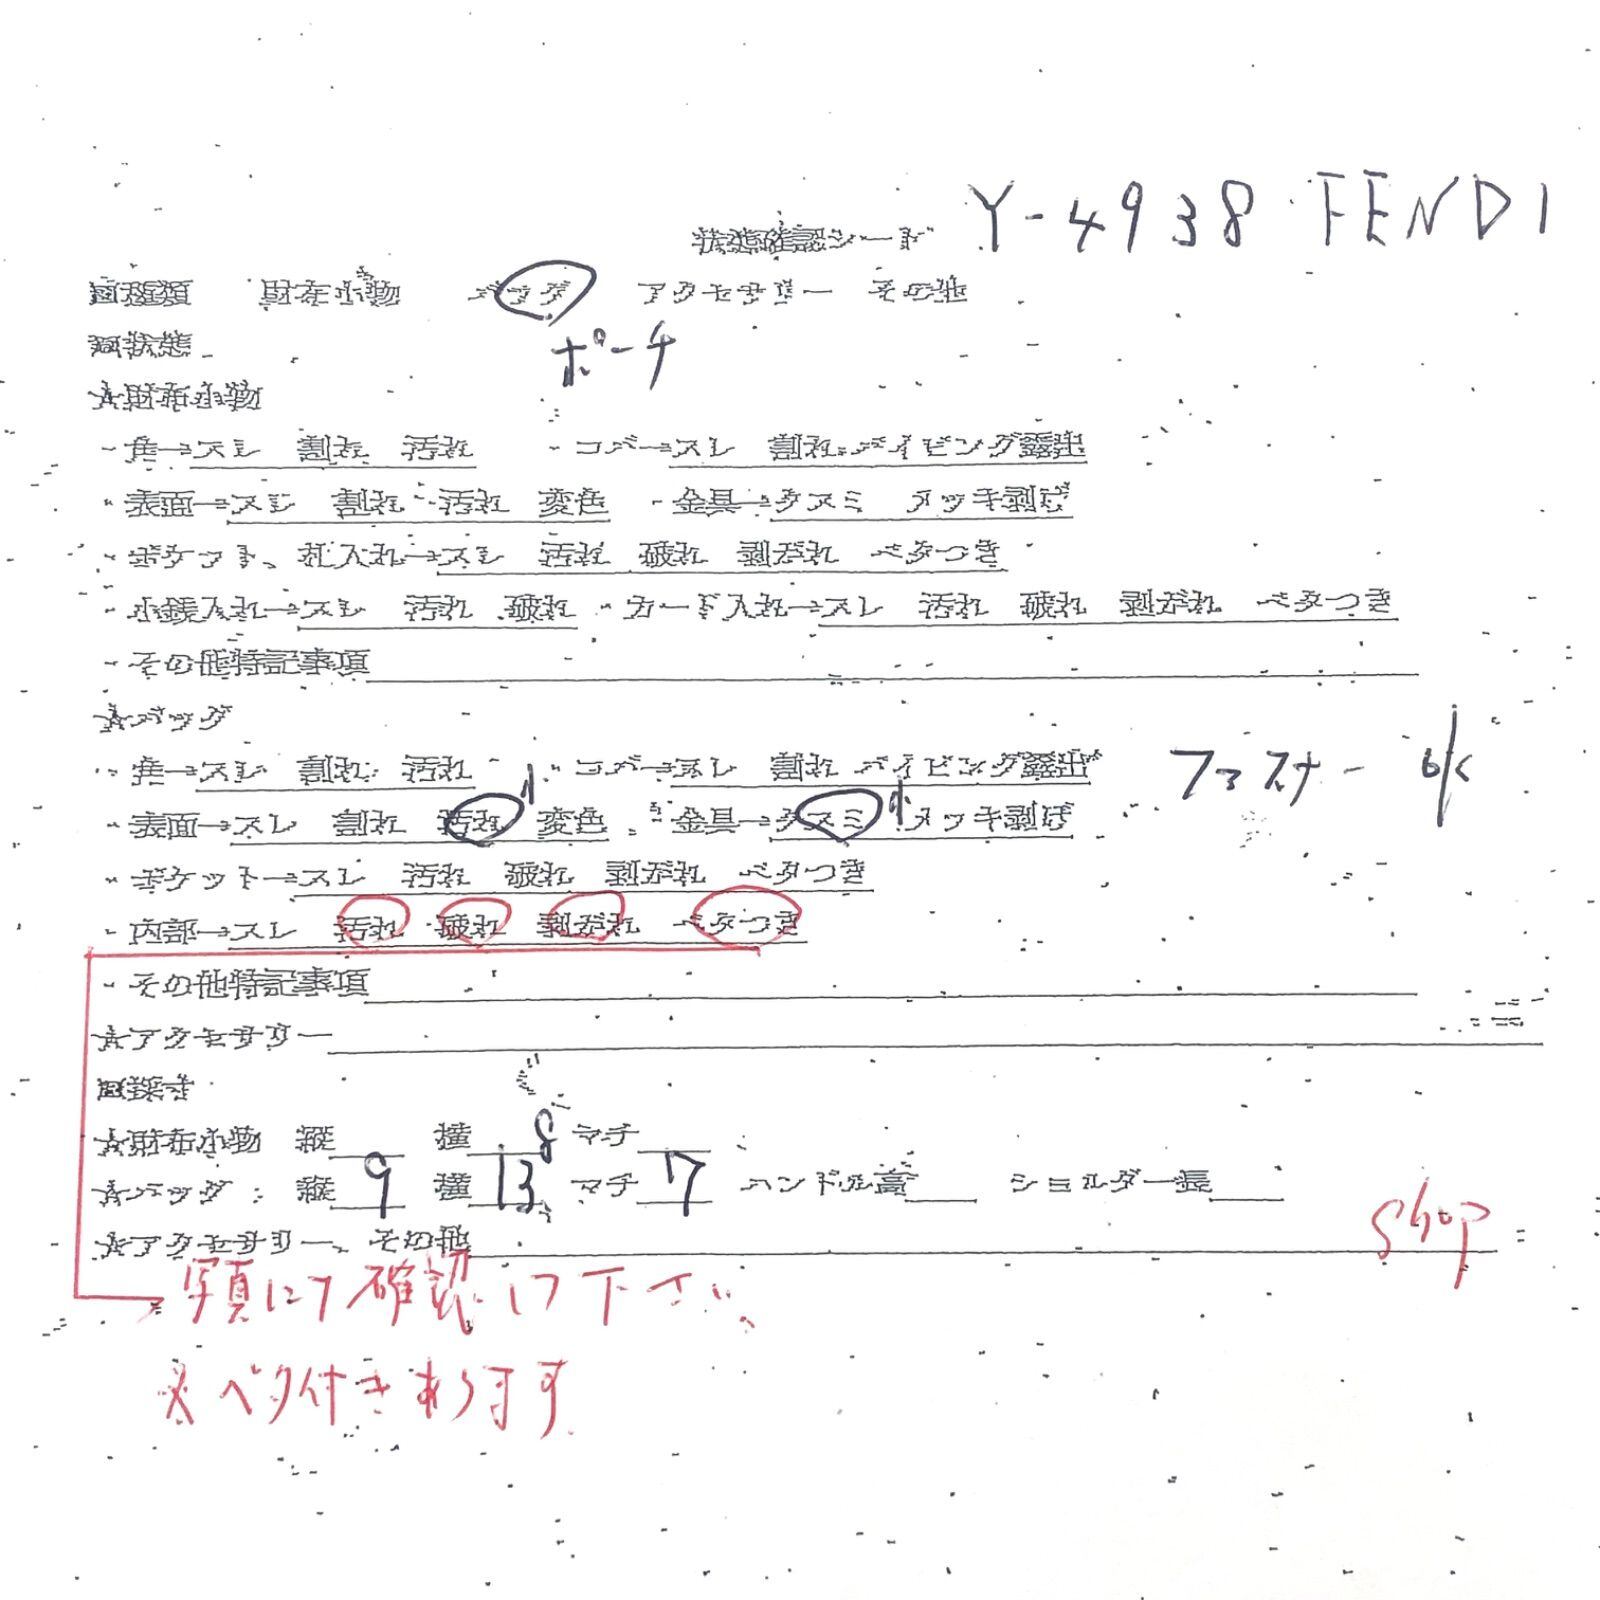 状態確認シート Y-4938 FENDI
□種類 財布小物 バッグ アクセサリー その他
□状態 ポーチ
☆財布小物
・角→スレ 割れ 汚れ ・コバ→スレ 割れ パイピング露出
・表面→スレ 割れ 汚れ 変色 ・金具→クスミ メッキ剥げ
・ポケット、札入れ→スレ 汚れ 破れ 剥がれ ベタつき
・小銭入れ→スレ 汚れ 破れ ・カード入れ→スレ 汚れ 破れ 剥がれ ベタつき
・その他特記事項
☆バッグ
・角→スレ 割れ 汚れ ・コバ→スレ 割れ パイピング露出 ファスナー ok
・表面→スレ 割れ 汚れ 小 変色 ・金具→クスミ 小 メッキ剥げ
・ポケット→スレ 汚れ 破れ 剥がれ ベタつき
・内部→スレ 汚れ 破れ 剥がれ ベタつき
・その他特記事項
☆アクセサリー
□採寸
☆財布小物 縦 横 8 マチ
☆バッグ: 縦 9 横 13 マチ 7 ハンドル高 ショルダー長
☆アクセサリー、その他 shop
写真にて確認して下さい。
※ベタ付きあります